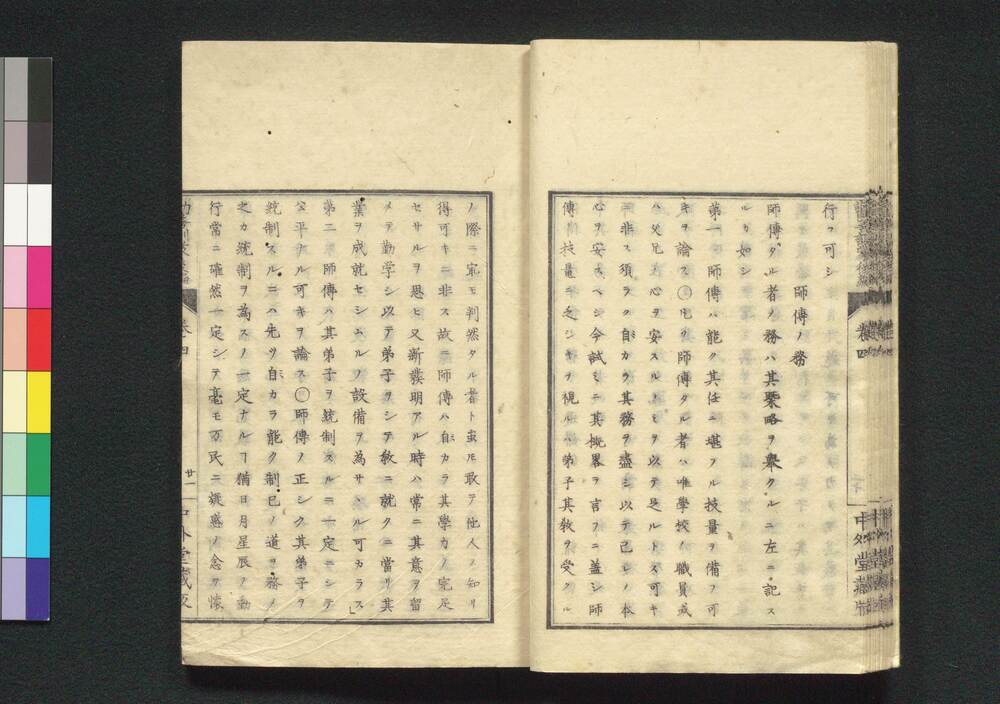 行フ可シ
師傳ノ務
師傳タル者ノ務ハ其槩略ヲ擧クルニ左ニ記ス
ルカ如シ
第一 師傳ハ能ク其任ニ堪フル技量ヲ備フ可
キヲ論ス〇凡ソ師傳タル者ハ唯學校ノ職員或
ハ父兄ノ心ヲ安スルノミヲ以テ足ルトス可キ
ニ非ス須ラク自カラ其務ヲ盡シ以テ己レノ本
心ヲ安スヘシ今試ミニ其概畧ヲ言フニ蓋シ師
傳技量ニ乏シキヲ視ルハ弟子其敎ヲ受クル
卷四
中外堂藏版
ノ際ニ寂モ判然タル者ト雖𪜈敢テ他人ノ知リ
得可キニ非ス故ニ師傳ハ自カラ其學力ノ完足
セサルヲ思ヒ又新發明アル時ハ常ニ其意ヲ留
メテ勤学シ以テ弟子ヲシテ敎ニ就クニ當リ其
業ヲ成就セシムルノ設備ヲ為サヽル可カラス
第二 師傳ハ其弟子ヲ統制スルニ一定ニシテ
公平ナル可キヲ論ス〇師傳ノ正シク其弟子ヲ
統制スルニハ先ツ自カラ能ク制已ノ道ヲ務メ
之カ統制ヲ為スノ一定ナルヿ猶日月星辰ノ動
行常ニ確然一定シテ毫モ万民ニ疑惑ノ念ヲ懐
卷四
廿一
中外堂藏版